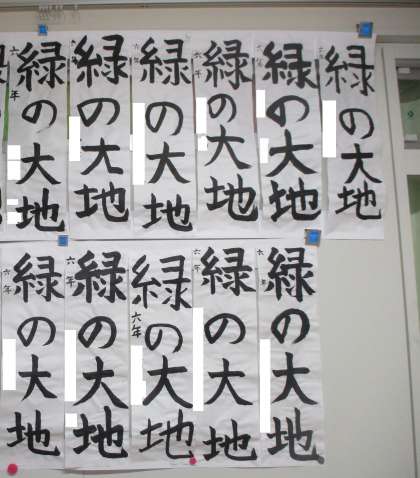 緑の大地
六年
緑の大地
六年
緑の大地
六年
緑の大地
六年
緑の大地
六年
緑の大地
六年
緑の大地
六年
緑の大地
六年
緑の大地
六年
緑の大地
六年
緑の大地
六年